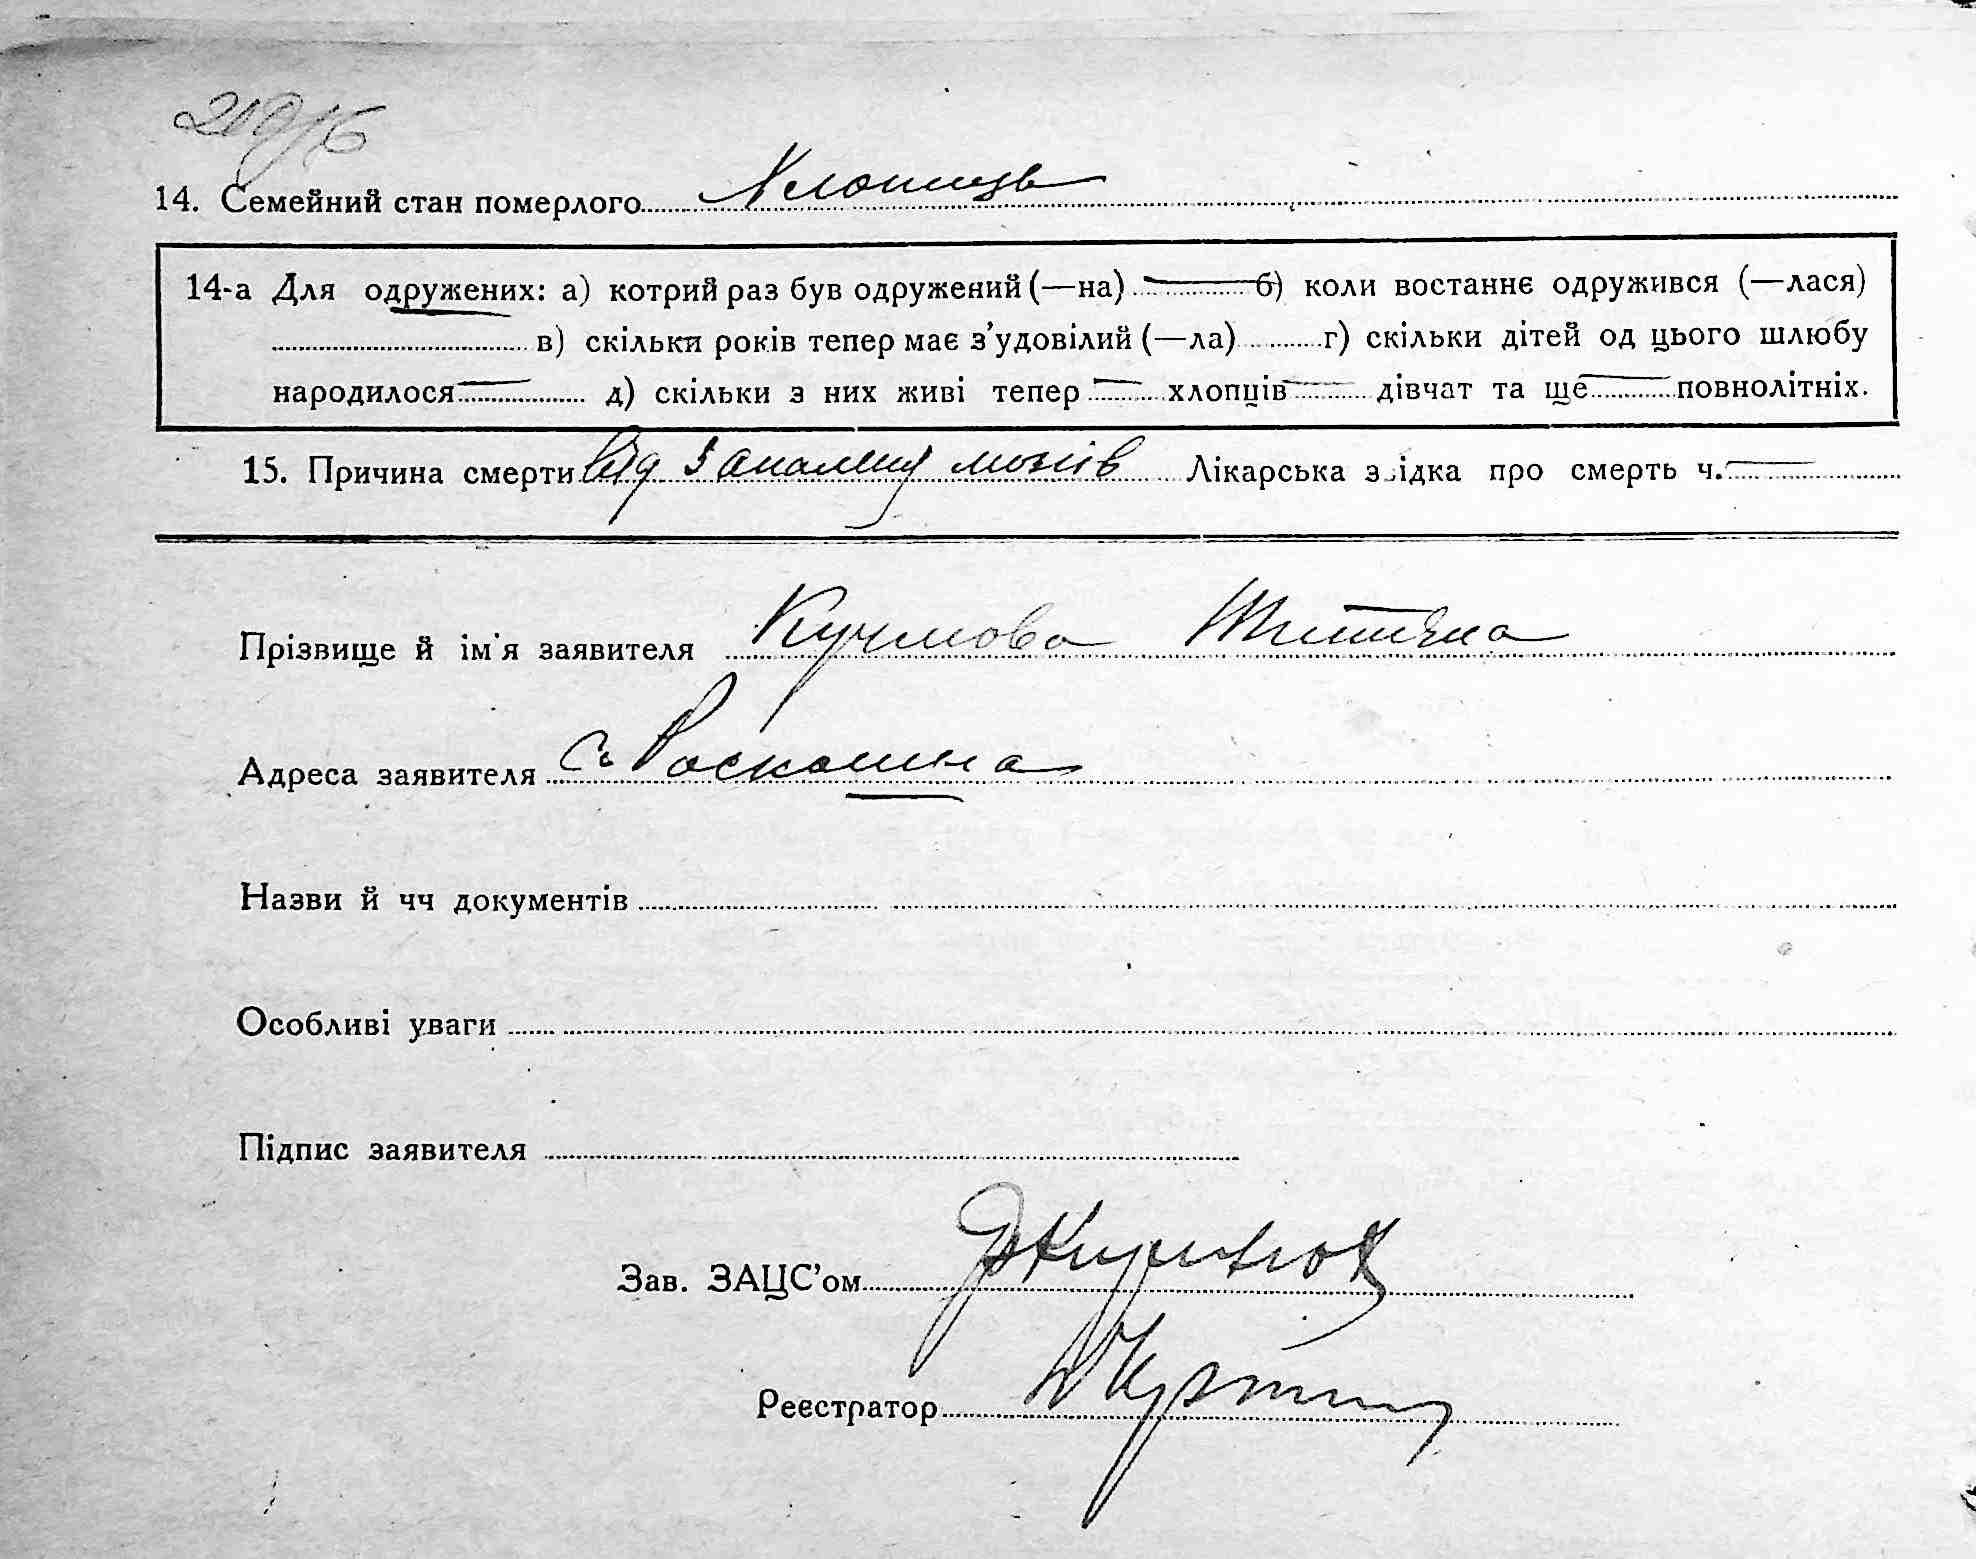 14. Семейний стан померлого Хлопець
14-а Для одружених: а) котрий раз був одружений (—на) б) коли востаннє одружився (—лася)
в) скільки років тепер має з'удовілий (—ла) г) скільки дітей од цього шлюбу
народилося д) скільки з них живі тепер хлопців дівчат та ще повнолітніх.
15. Причина смерти від запаленя мозків Лікарська звідка про смерть ч.
Прізвище й ім'я заявителя Кучмова
Адреса заявителя с. Роскошна
Назви й чч документів
Особливі уваги
Підпис заявителя
Зав. ЗАЦС'ом
Реєстратор